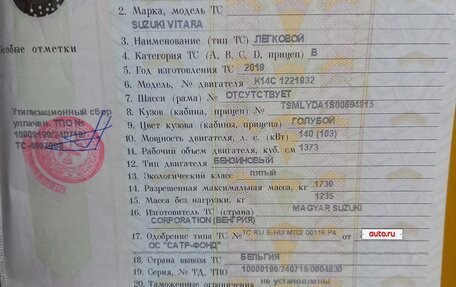 2. Марка, модель ТС
SUZUKI VITARA
3. Наименование (тип ТС) ЛЕГКОВОЙ
4. Категория ТС (A, B, C, D, прицеп) B
5. Год изготовления ТС 2019
6. Модель, № двигателя K14C 1221932
7. Шасси (рама) № ОТСУТСТВУЕТ
8. Кузов (кабина, прицеп) № TSMLYDA1S00694815
9. Цвет кузова (кабины, прицепа) ГОЛУБОЙ
10. Мощность двигателя, л. с. (кВт) 140 (103)
11. Рабочий объем двигателя, куб. см 1373
12. Тип двигателя БЕНЗИНОВЫЙ
13. Экологический класс ПЯТЫЙ
14. Разрешенная максимальная масса, кг 1730
15. Масса без нагрузки, кг 1235
16. Изготовитель ТС (страна) MAGYAR SUZUKI
CORPORATION (ВЕНГРИЯ)
17. Одобрение типа ТС № ТС RU E-HU.MT02.00116.Р4
auto.ru
ОС "САТР-ФОНД"
18. Страна вывоза ТС БЕЛЬГИЯ
19. Серия, № ТД, ТПО 10009199/240719/0004630
20. Таможенные ограничения не установлены
собые отметки
Утилизационный сбор
уплачен. ТПО №
10009199/240719/